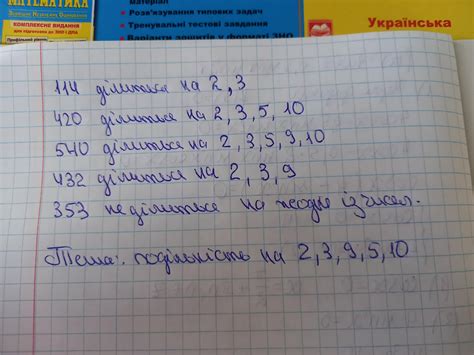 МАТЕМАТИКА
КОМПЛЕКСНЕ ВИДАННЯ
матеріал
• Розв'язування типових задач
• Тренувальні тестові завдання
• Варіанти зошитів у форматі ЗНО
Українська
114 ділиться на 2, 3
420 ділиться на 2, 3, 5, 10
540 ділиться на 2, 3, 5, 9, 10
432 ділиться на 2, 3, 9
353 не ділиться на жодне із чисел.
Тема: подільність на 2, 3, 9, 5, 10